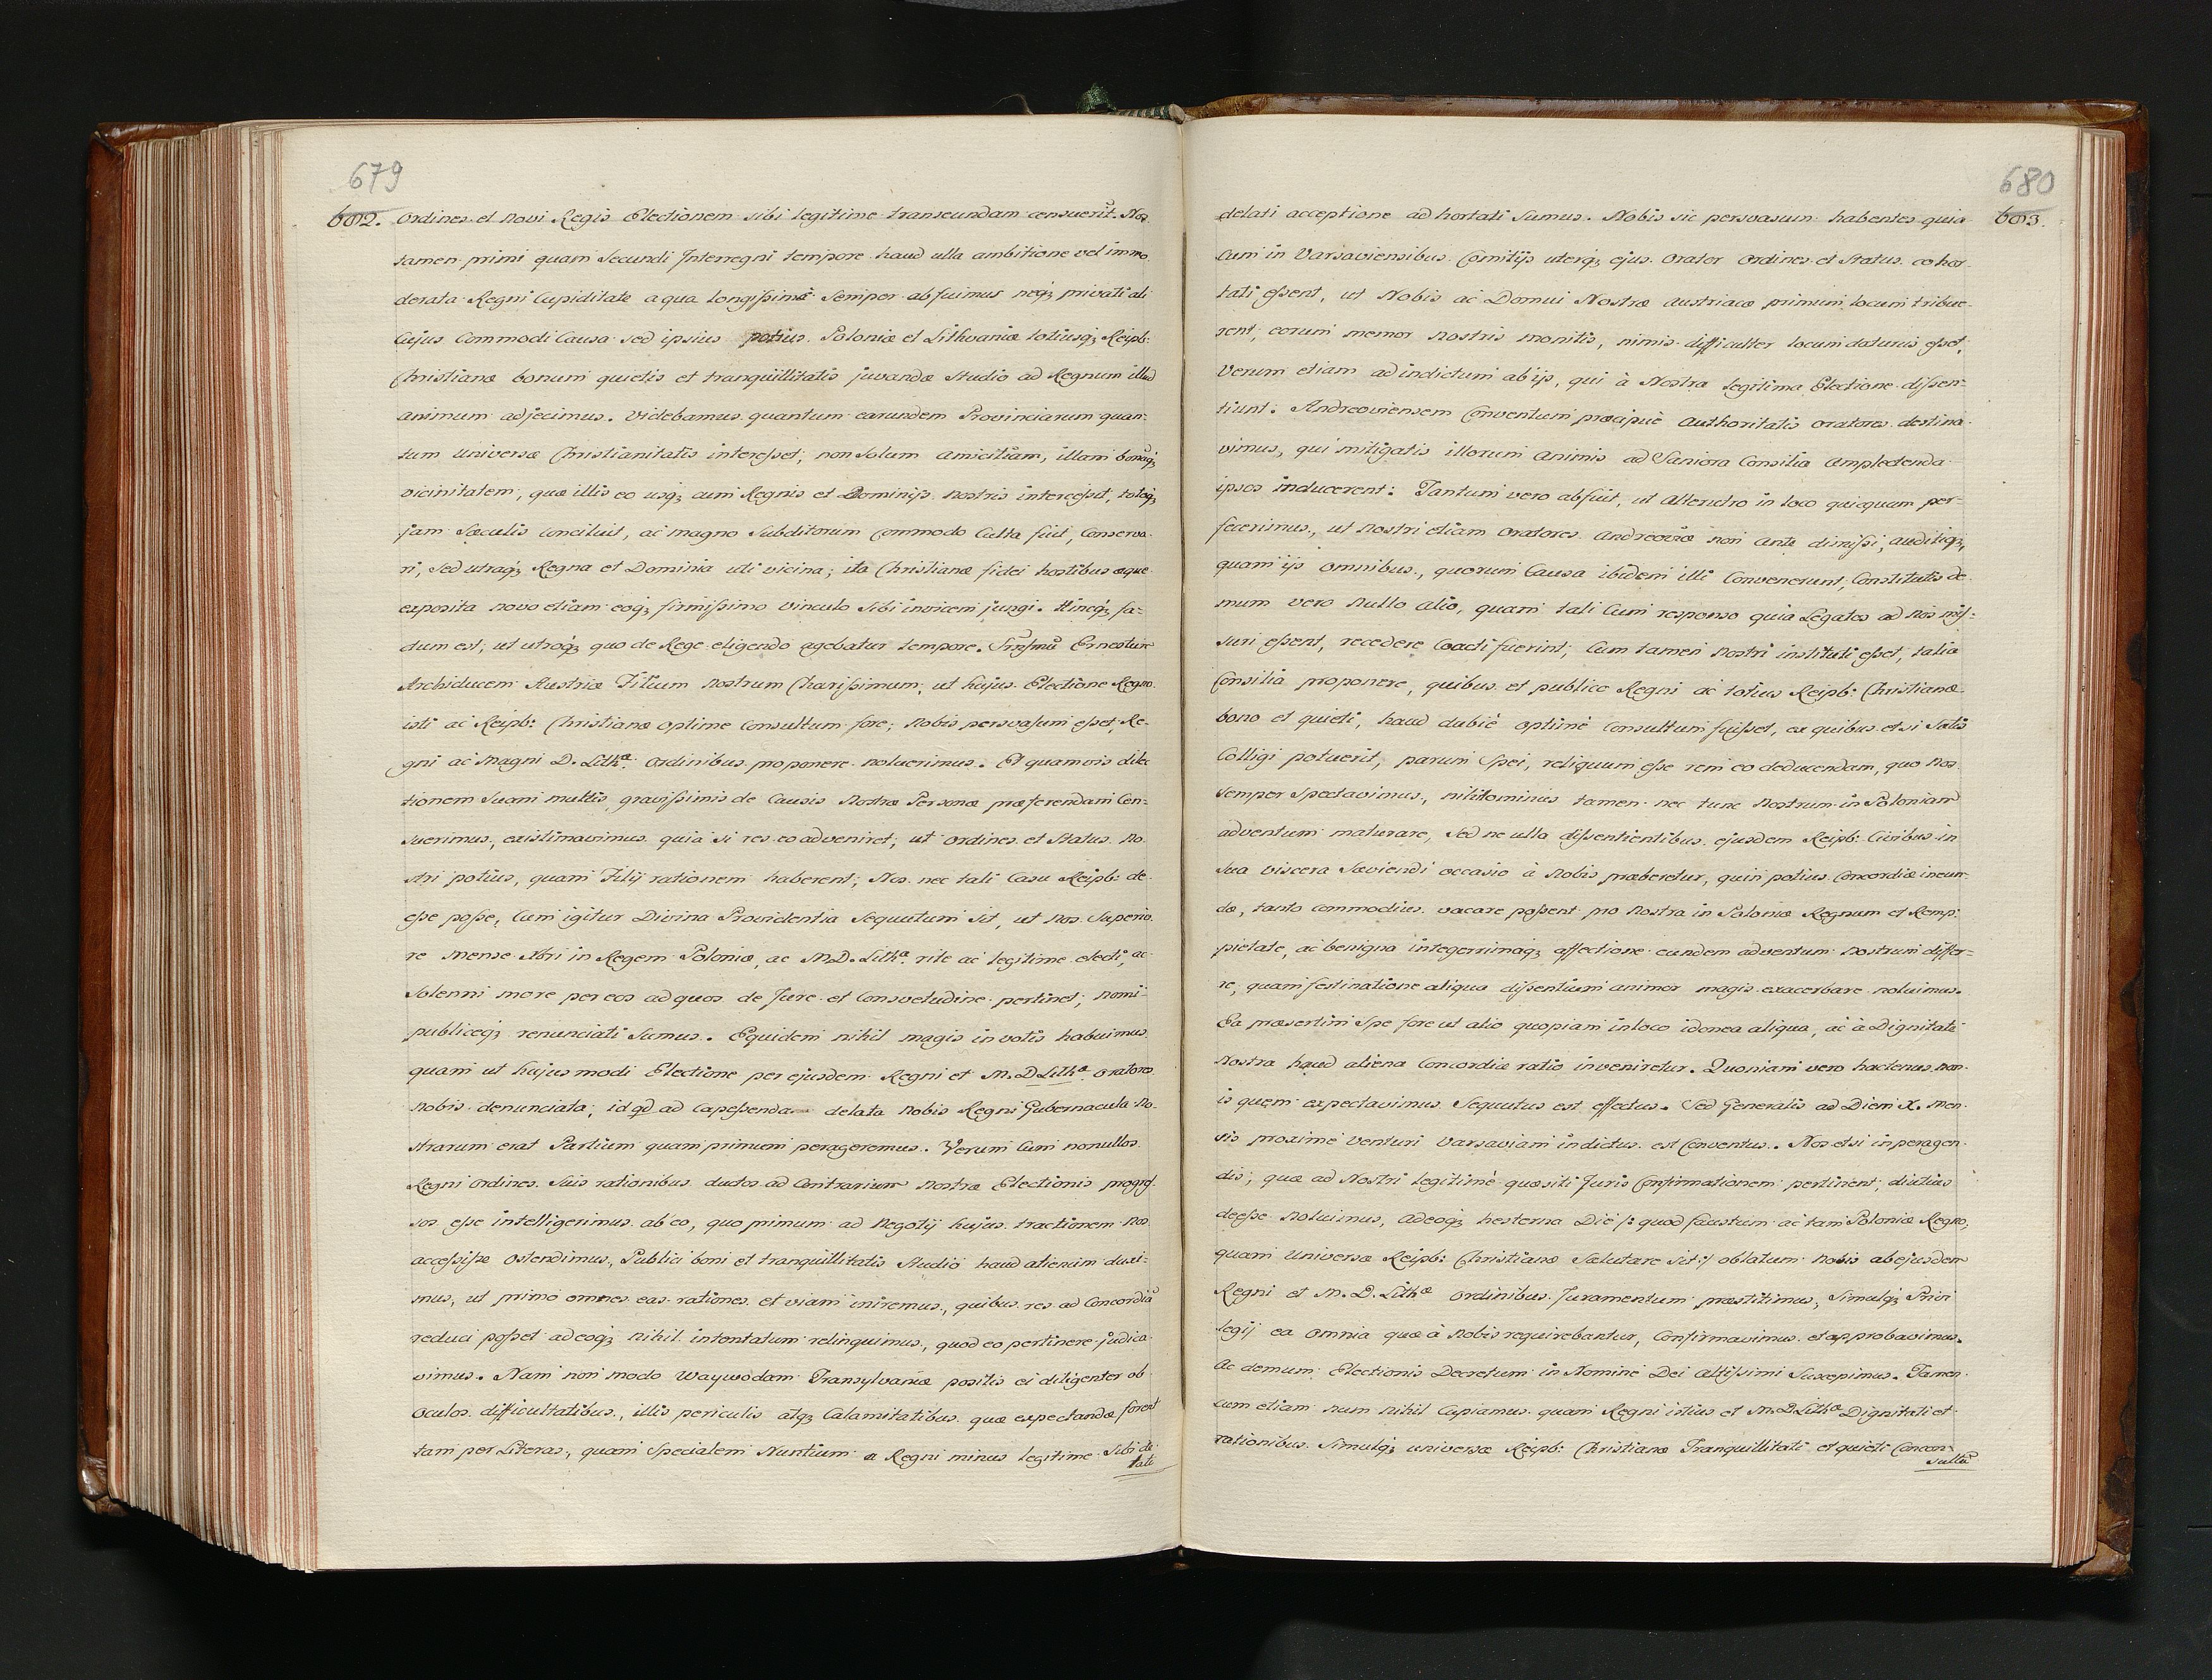 679
602. Ordines et novi Regis Electionem sibi legitime transeundam censuerut. Nos
tamen primi quam Secundi Interregni tempore haud ulla ambitione vel immo
derata Regni Cupiditate a qua longissime Semper abfuimus neq; privati ali
Cujus Commodi Causa sed ipsius potius Poloniæ et Lithvaniæ totiusq; Reipb:
Christianæ bonum quietis et tranquillitatis juvandæ Studio ad Regnum illud
animum adjecimus. Videbamus quantum earundem Provinciarum quan-
tum universæ Christianitatis interesset, non Solum amicitiam, illam bonaq;
vicinitatem, quæ illis eo usq; cum Regnis et Dominijs nostris intercessit, totq;
jam Sæculis conciluit, ac magno Subditorum Commodo Culta fuit, Conserva-
ri, Sed utraq; Regna et Dominia uti vicina; ita Christianæ fidei hostibus æque
exposita novo etiam eoq; firmissimo vinculo Sibi invicem jungi. Hincq; fa-
ctum est, ut utroq; quo de Rege eligendo agebatur tempore. Srnsmu Ernestum
Archiducem Austriæ Filium Nostrum Charissimum, ut hujus Electione Regno
isti ac Reipb: Christianæ optime Consultum fore; nobis persvasum esset, Re-
gni ac Magni D. Lithæ. Ordinibus proponere voluerimus. Et quamvis dile
ctionem Suam multis gravissimis de Causis Nostræ Personæ præferendam Cen-
suerimus, existimavimus quia si res eo adveniret, ut Ordines et Status No-
stri potius, quam Filij rationem haberent, Nos nec tali Casu Reipb: de-
esse posse, Cum igitur Divina Providentia Sequutum sit, ut Nos Superio
re Mense Xbri in Regem Poloniæ, ac M.D. Lithæ. rite ac legitime electi, ac
Solenni more per eos ad quos de Jure et Consvetudine pertinet, nomi-
publiceq; renunciati Sumus. Equidem nihil magis in votis habuimus
quam ut hujusmodi Electione per ejusdem Regni et M. D Lithæ. Oratores
Nobis denunciata, id qd ad Capessenda delata Nobis Regni Gubernacula No-
strarum erat Partium quam primum perageremus. Verum Cum nonullos
Regni Ordines Suis rationibus ductos ad Contrarium Nostræ Electionis progres
sos esse intelligerimus ab eo, quo primum ad Negotij hujus tractionem Nos
accessisse ostendimus, Publici boni et tranquillitatis Studio haud alienum duxi-
mus, ut primo omnes eas rationes et viam iniremus, quibus res ad Concordiã
reduci posset adeoq; nihil intentatum relinquimus, quod eo pertinere judica-
vimus. Nam non modo Waywodam Transylvaniæ positis ei diligenter ob
oculos difficultatibus, illis periculis atq; Calamitatibus quæ expectandæ forent
tam per Literas, quam Specialem Nuntium a Regni minus legitime Sibi de
lati
680
603.
delati acceptione adhortati Sumus. Nobis sic persvasum habentes quia
Cum in Varsaviensibus Comitijs uterq; ejus Orator Ordines et Status cohor-
tati essent, ut Nobis ac Domui Nostræ Austriacæ primum locum tribue-
rent, eorum memor Nostris monitis, nimis difficulter locum daturus esset,
Verum etiam ad indictum ab ijs, qui à Nostra legitima Electione dissen-
tiunt. Andreoviensem Conventum præcipuè Authoritatis Oratores destina-
vimus, qui mitigatis illorum animis ad Saniora Consilia amplectenda
ipsos inducerent: Tantum vero abfuit, ut Alterutro in loco quicquam per-
fecerimus, ut Nostri etiam Oratores Andreoviæ non ante dimissi, auditiq;,
quam ijs omnibus, quorum Causa ibidem illi Convenerunt, Constitutis de-
mum vero Nullo alio, quam tali Cum responso quia Legatos ad Nos mis-
suri essent, recedere Coacti fuerint; Cum tamen Nostri instituti esset, talia
Consilia proponere, quibus et publico Regni ac totius Reipb: Christianæ
bono et quieti, haud dubiè optimè Consultum fuisset, ex quibus etsi Satis
Colligi potuerit, parum Spei, reliquum esse rem eo deducendam, quo Nos
Semper Spectavimus, nihilominus tamen nec tunc Nostrum in Poloniam
adventum maturare, Sed ne ulla dissentientibus ejusdem Reipb: Civibus in
Sua viscera Sæviendi occasio à Nobis præberetur, quin potius Concordiæ ineun-
dæ, tanto commodius vacare possent pro Nostra in Poloniæ Regnum et Remp:
pietate, ac benigna integerrimaq; affectione eundem adventum Nostrum differ-
re, quam festinatione aliqua dissentium animos magis exacerbare voluimus.
Ea præsertim Spe fore ut alio quopiam in loco idonea aliqua, ac à Dignitate
Nostra haud aliena Concordiæ ratio inveniretur. Quoniam vero hactenus non
is quem expectavimus Sequutus est effectus. Sed Generalis ad Diem X. Men-
sis proximè Venturi Varsaviam indictus est Conventus. Nos etsi in peragen-
dis, quæ ad Nostri legitimè quæsiti Juris Confirmationem pertinent, diutius
deesse Noluimus, adeoq; hesterna Die /: quod faustum ac tam Poloniæ Regno,
quam Universæ Reipb: Christianæ Salutare Sit :/ oblatum Nobis ab ejusdem
Regni et M. D. Lithæ Ordinibus Juramentum præstitimus, Simulq; Privi
legij ea omnia quæ à Nobis requirebantur, Confirmavimus et approbavimus.
Ac demum Electionis Decretum in Nomine Dei Altissimi Suscepimus. Tamen
cum etiam num nihil Cupiamus quam Regni istius et M. D. Lithæ Dignitati et
rationibus Simulq; universæ Reipb: Christianæ Tranquillitati et quieti Concon-
sultũ